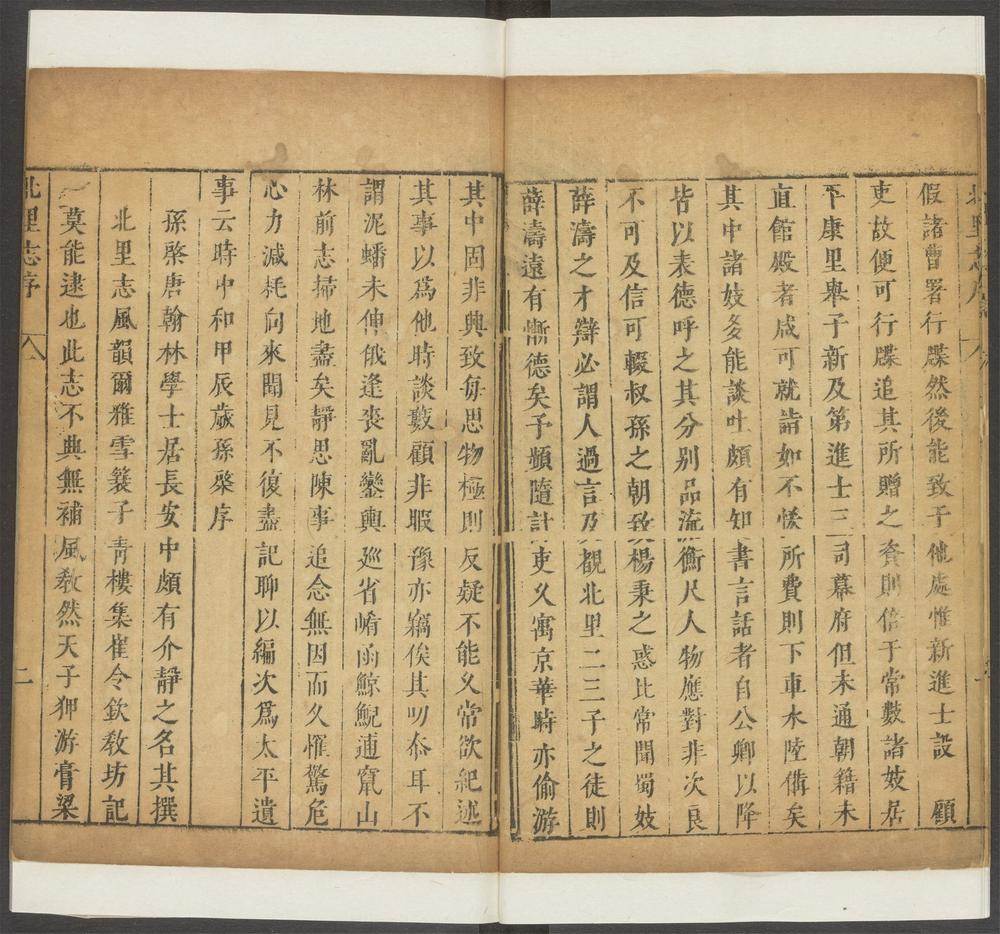 假諸曹署行牒然後能致于他處惟新進士設 顧
吏故便可行牒追其所贈之資則倍于常數諸妓居
平康里舉子新及第進士三司幕府但未通朝籍未
直館殿者咸可就詣如不恡所費則下車水陸備矣
其中諸妓多能談吐頗有知書言話者自公卿以降
皆以表德呼之其分別品流衡尺人物應對非次良
不可及信可輟叔孫之朝致楊秉之惑比常聞蜀妓
薛濤之才辯必謂人過言及覩北里二三子之徒則
薛濤遠有慚德矣予頻隨計吏久寓京華時亦偷游
其中固非興致每思物極則反疑不能久常欲紀述
其事以爲他時談藪顧非暇豫亦竊俟其叨忝耳不
謂泥蟠未伸俄逢喪亂鑾輿巡省崤函鯨鯢逋竄山
林前志掃地盡矣靜思陳事追念無因而久罹驚危
心力減耗向來聞見不復盡記聊以編次爲太平遺
事云時中和甲辰歲孫棨序
孫棨唐翰林學士居長安中頗有介靜之名其撰
北里志風韻爾雅雪簑子青樓集崔令欽敎坊記
莫能逮也此志不典無補風敎然天子狎游膏梁
北里志序 二